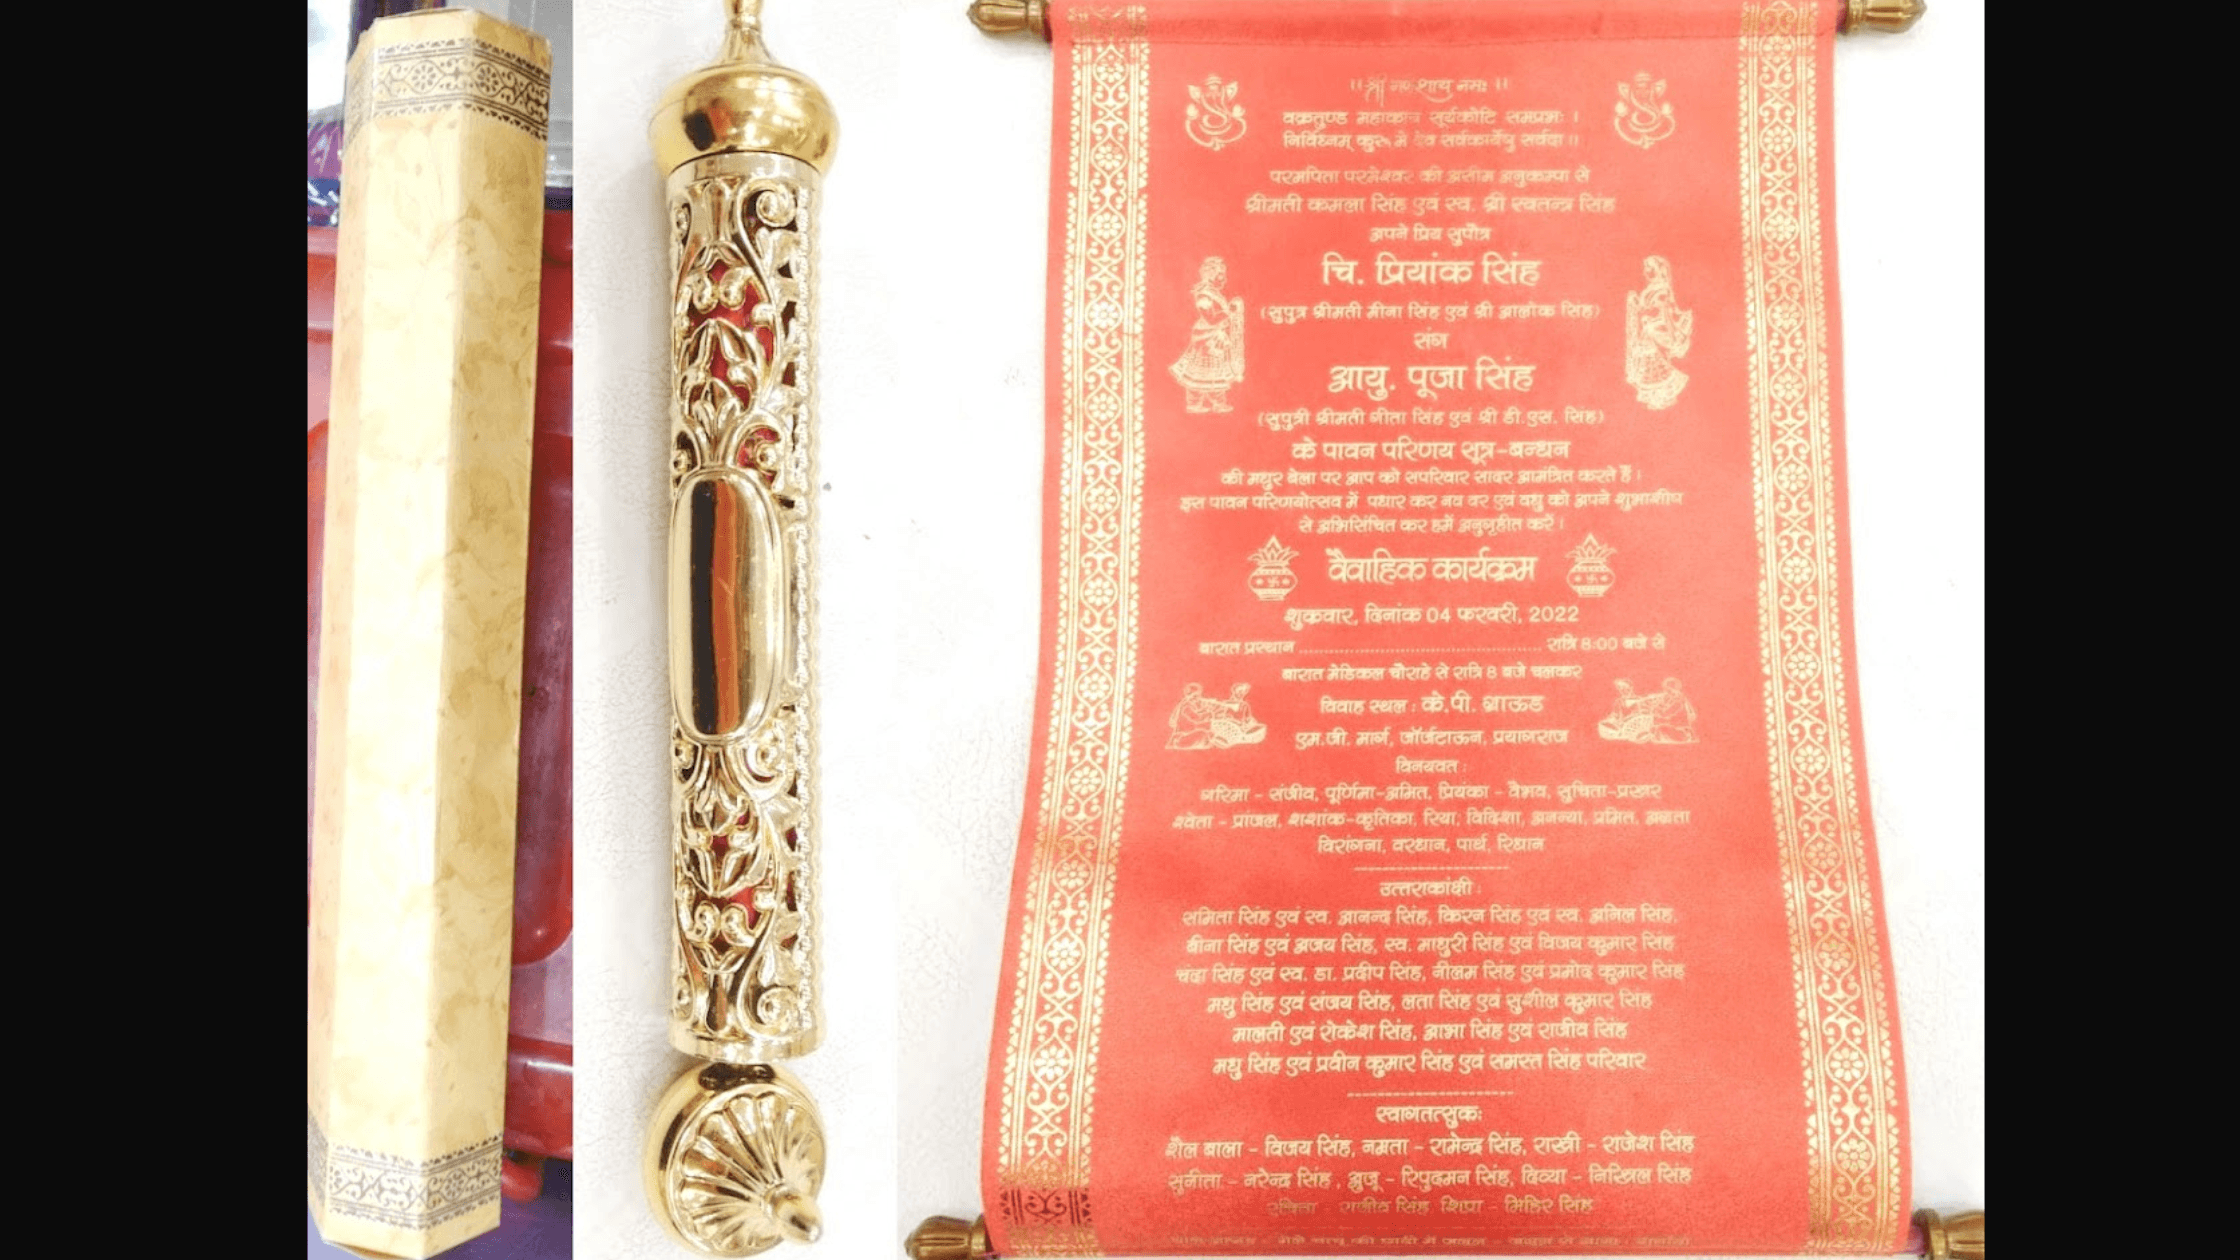 ।। श्री गणेशाय नमः ।।
वक्रतुण्ड महाकाय सूर्यकोटि समप्रभः ।
निर्विघ्नम् कुरू मे देव सर्वकार्येषु सर्वदा ।।
परमपिता परमेश्वर की असीम अनुकम्पा से
श्रीमती कमला सिंह एवं स्व. श्री स्वतन्त्र सिंह
अपने प्रिय सुपौत्र
चि. प्रियांक सिंह
(सुपुत्र श्रीमती मीना सिंह एवं श्री आलोक सिंह)
संग
आयु. पूजा सिंह
(सुपुत्री श्रीमती गीता सिंह एवं श्री डी.एस. सिंह)
के पावन परिणय सूत्र-बन्धन
की मधुर बेला पर आप को सपरिवार सादर आमंत्रित करते हैं ।
इस पावन परिणयोत्सव में पधार कर नव वर एवं वधु को अपने शुभाशीष
से अभिसिंचित कर हमें अनुगृहीत करें ।
वैवाहिक कार्यक्रम
शुक्रवार, दिनांक 04 फरवरी, 2022
बारात प्रस्थान ........................................ रात्रि 8:00 बजे से
बारात मेडिकल चौराहे से रात्रि 8 बजे चलकर
विवाह स्थल : के.पी. ग्राऊंड
एम.जी. मार्ग, जॉर्जटाऊन, प्रयागराज
विनयवत :
गरिमा - संजीव, पूर्णिमा-अमित, प्रियंका - वैभव, सुचिता-प्रखर
श्वेता - प्रांजल, शशांक-कृतिका, रिया, विदिशा, अनन्या, प्रमित, अग्रता
विरांगना, वरधान, पार्थ, रिधान
उत्तराकांक्षी :
समिता सिंह एवं स्व. आनन्द सिंह, किरन सिंह एवं स्व. अनिल सिंह,
बीना सिंह एवं अजय सिंह, स्व. माधुरी सिंह एवं विजय कुमार सिंह
चंदा सिंह एवं स्व. डा. प्रदीप सिंह, नीलम सिंह एवं प्रमोद कुमार सिंह
मधु सिंह एवं संजय सिंह, लता सिंह एवं सुशील कुमार सिंह
मालती एवं राकेश सिंह, आभा सिंह एवं राजीव सिंह
मधु सिंह एवं प्रवीन कुमार सिंह एवं समस्त सिंह परिवार
स्वागतत्सुक:
शैल बाला - विजय सिंह, नम्रता - रामेन्द्र सिंह, राखी - राजेश सिंह
सुनीता - नरेन्द्र सिंह , अुजू - रिपुदमन सिंह, दिव्या - निखिल सिंह
राजीव सिंह, शिप्रा - मिहिर सिंह